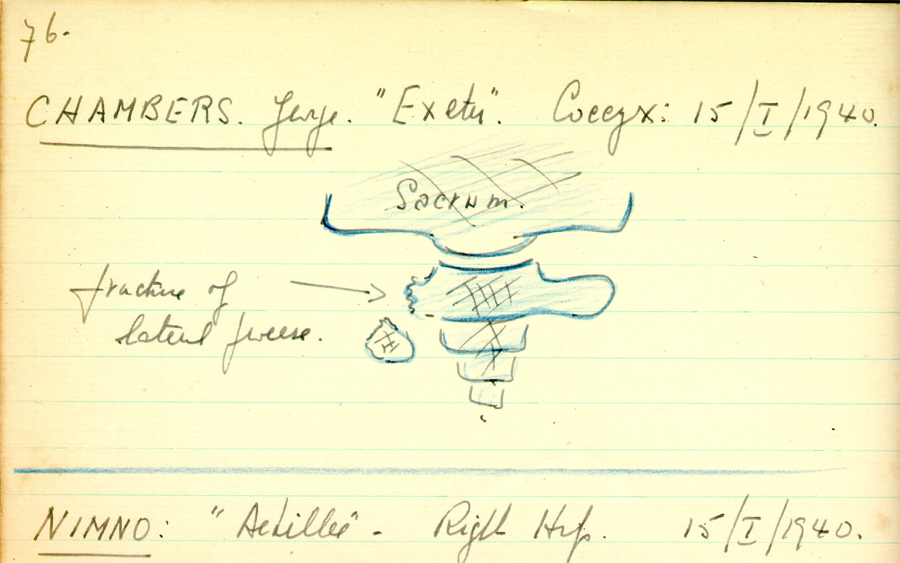 76.
CHAMBERS. George. "Exeter". Coccyx: 15/I/1940.
Sacrum.
fracture of
lateral process.
NIMNO: "Achilles" - Right Hip. 15/I/1940.